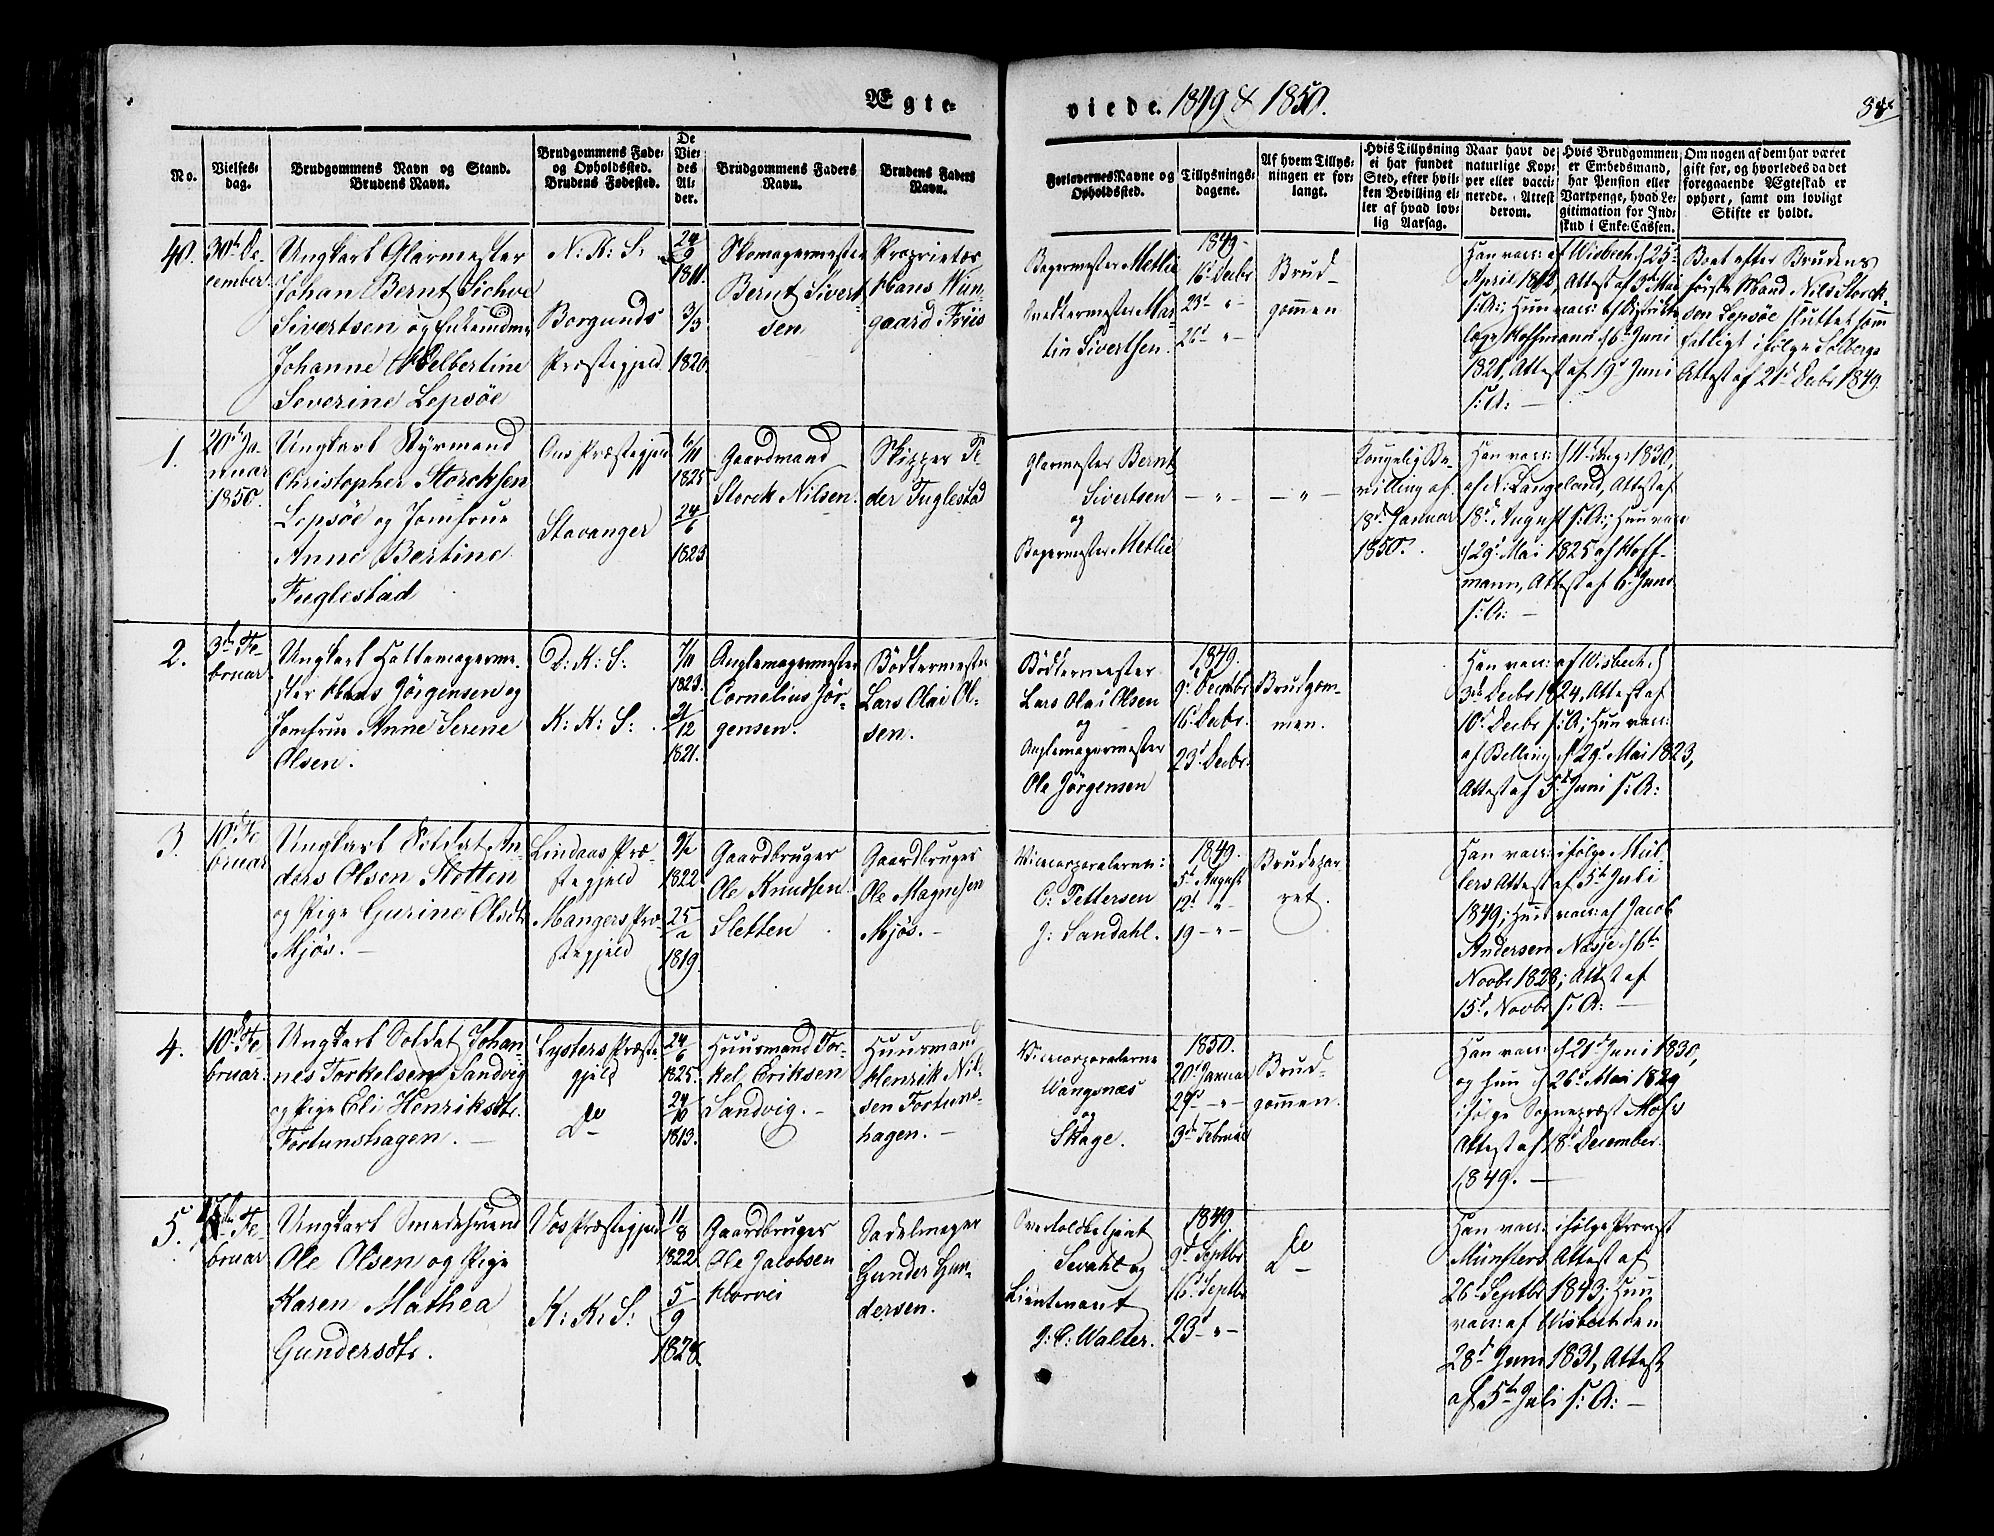 Ægte-
viede 1849 & 1850.
No.
Vielses-
dag.
Brudgommens Navn og Stand.
Brudens Navn.
Brudgommens Føde-
og Opholdssted.
Brudens Fødested.
De
Vie-
des
Al-
der.
Brudgommens Faders
Navn.
Brudens Faders
Navn.
Forlovernes Navne og
Opholdssted.
Tillysnings-
dagene.
Af hvem Tillys-
ningen er for-
langt.
Hvis Tillysning
ei har fundet
Sted, efter hvil-
ken Bevilling el-
ler af hvad lov-
lig Aarsag.
Naar havt de
naturlige Kop-
per eller vacci-
nerede. Attest
derom.
Hvis Brudgommen
er Embedsmand,
har Pension eller
Vartpenge, hvad Le-
gitimation for Ind-
skud i Enke-Cassen.
Om nogen af dem har været
gift før, og hvorledes da det
foregaaende Ægteskab er
ophørt, samt om lovligt
Skifte er holdt.
40.
30te De-
cember
Ungkarl Glarmester
Johan Bernt Sichve
Sivertsen og Enkemadme
Johanne Helbertine
Severine Lepsöe
N: K: S:
Borgunds
Præstegjeld
24/9
1811.
3/3
1820.
Skomagermester
Bernt Sivert-
sen
Proprietær
Hans Wün-
gaard Friis
Bagermester Metlie
Snedkermester Mar-
tin Sivertsen.
1849.
16d Decbr
23d "
26d "
Brud-
gommen
Han vacc: af Wisbech d 25d
April 1812, Attest af 3d Mai
s: A: Hun vacc: af Distrikts-
læge Hoffmann d 6te Juni
1821, Attest af 19d Juni
s: A: —
Boet efter Brudens
første Mand Nils Storck-
sen Lepsöe sluttet som
fælligt ifølge Solbergs
Attest af 21d Decbr 1849.
1.
20de Ja-
nuar
1850.
Ungkarl Styrmand
Christopher Storcksen
Lepsöe og Jomfrue
Anne Bertine
Fuglestad
Ous Præstegjeld
Stavanger
6/11
1825
24/6
1823
Gaardmand
Storck Nilsen.
Skipper Pe-
der Fuglestad
Glarmester Bernt
Sivertsen
og
Bagermester Metlie
— " —
— " —
Kongelig Be-
villing af
18d Januar
1850.
Han vacc: d 11 Aug: 1830,
af N: Langeland, Attest af
18d August s: A:; Hun vacc
d 29d Mai 1825 af Hoff-
mann, Attest af 6d Juni
s: A: —
2.
3die Fe-
bruar
Ungkarl Hattemagerme-
ster Hans Jörgensen og
Jomfrue Anne Serene
Olsen.
D: K: S:
K: K: S:
7/11
1823.
21/12
1821.
Anglemagermester
Cornelius Jör-
gensen.
Bödkermester
Lars Olai Ol-
sen.
Bödkermester
Lars Olai Olsen
og
Anglemagermester
Ole Jörgensen
1849.
9d Decbr
16d Decbr.
23d Decbr.
Brudgom-
men.
Han vacc: af Wisbech d
3die Decbr 1824, Attest af
10d Decbr s: A; Hun vacc:
af Belling d 29d Mai 1823,
Attest af 3d Juni s: A:
3.
10d Fe-
bruar
Ungkarl Soldat An-
ders Olsen Sletten
og Pige Gurine Olsdtr
Mjös. —
Lindaas Præ-
stegjeld
Mangers Præ-
stegjeld
1822
1819.
Gaardbruger
Ole Knudsen
Sletten
Gaardbruger
Ole Magnesen
Mjös. —
Vicecorporalerne:
O: Pettersen
J: Sandahl.
1849.
5d August
12d "
19 — " —
Brudepar-
ret.
Han vacc: ifølge Mül-
lers Attest af 5te Juli
1849; Hun vacc: af Jacob
Andersen Nesse d 6te
Novbr 1828; Attest af
15d Novbr s: A: —
4.
10d Fe-
bruar.
Ungkarl Soldat Johan-
nes Torkelsen Sandvig
og Pige Eli Henriksdtr.
Fortunshagen. —
Lysters Præste-
gjeld
Do
24/6
1825.
24/10
1813.
Huusmand Tor-
kel Eriksen
Sandvig. —
Huusmand
Henrik Nil-
sen Fortuns-
hagen. —
Vicecorporalerne
Wangsnæs
og
Skage.
1850.
20d Januar
27d — " —
3die Februar
Brud-
gommen.
Han vacc: d 21d Juni 1830,
og Hun d 26d Mai 1829
ifølge Sognepræst Mohrs
Attest af 18d December
1849. —
5.
Fe-
bruar
Ungkarl Smedesvend
Ole Olsen og Pige
Karen Mathea
Gundersdtr.
Vos Præstegjeld
K: K: S:
11/8
1822
5/9
1828.
Gaardbruger
Ole Jacobsen
Horvei
Sadelmager
Gunder Gun-
dersen.
Overtoldbetjent
Sevahl og
Lieutenant
J: C: Walter.
1849.
9d Septbr
16d Septbr
23d — " —
Do
Han vacc: ifølge Provst
Münsters Attest af
26d Septbr 1843; Hun
vacc: af Wisbech den
28d Juni 1831, Attest
af 5te Juli s: A: —